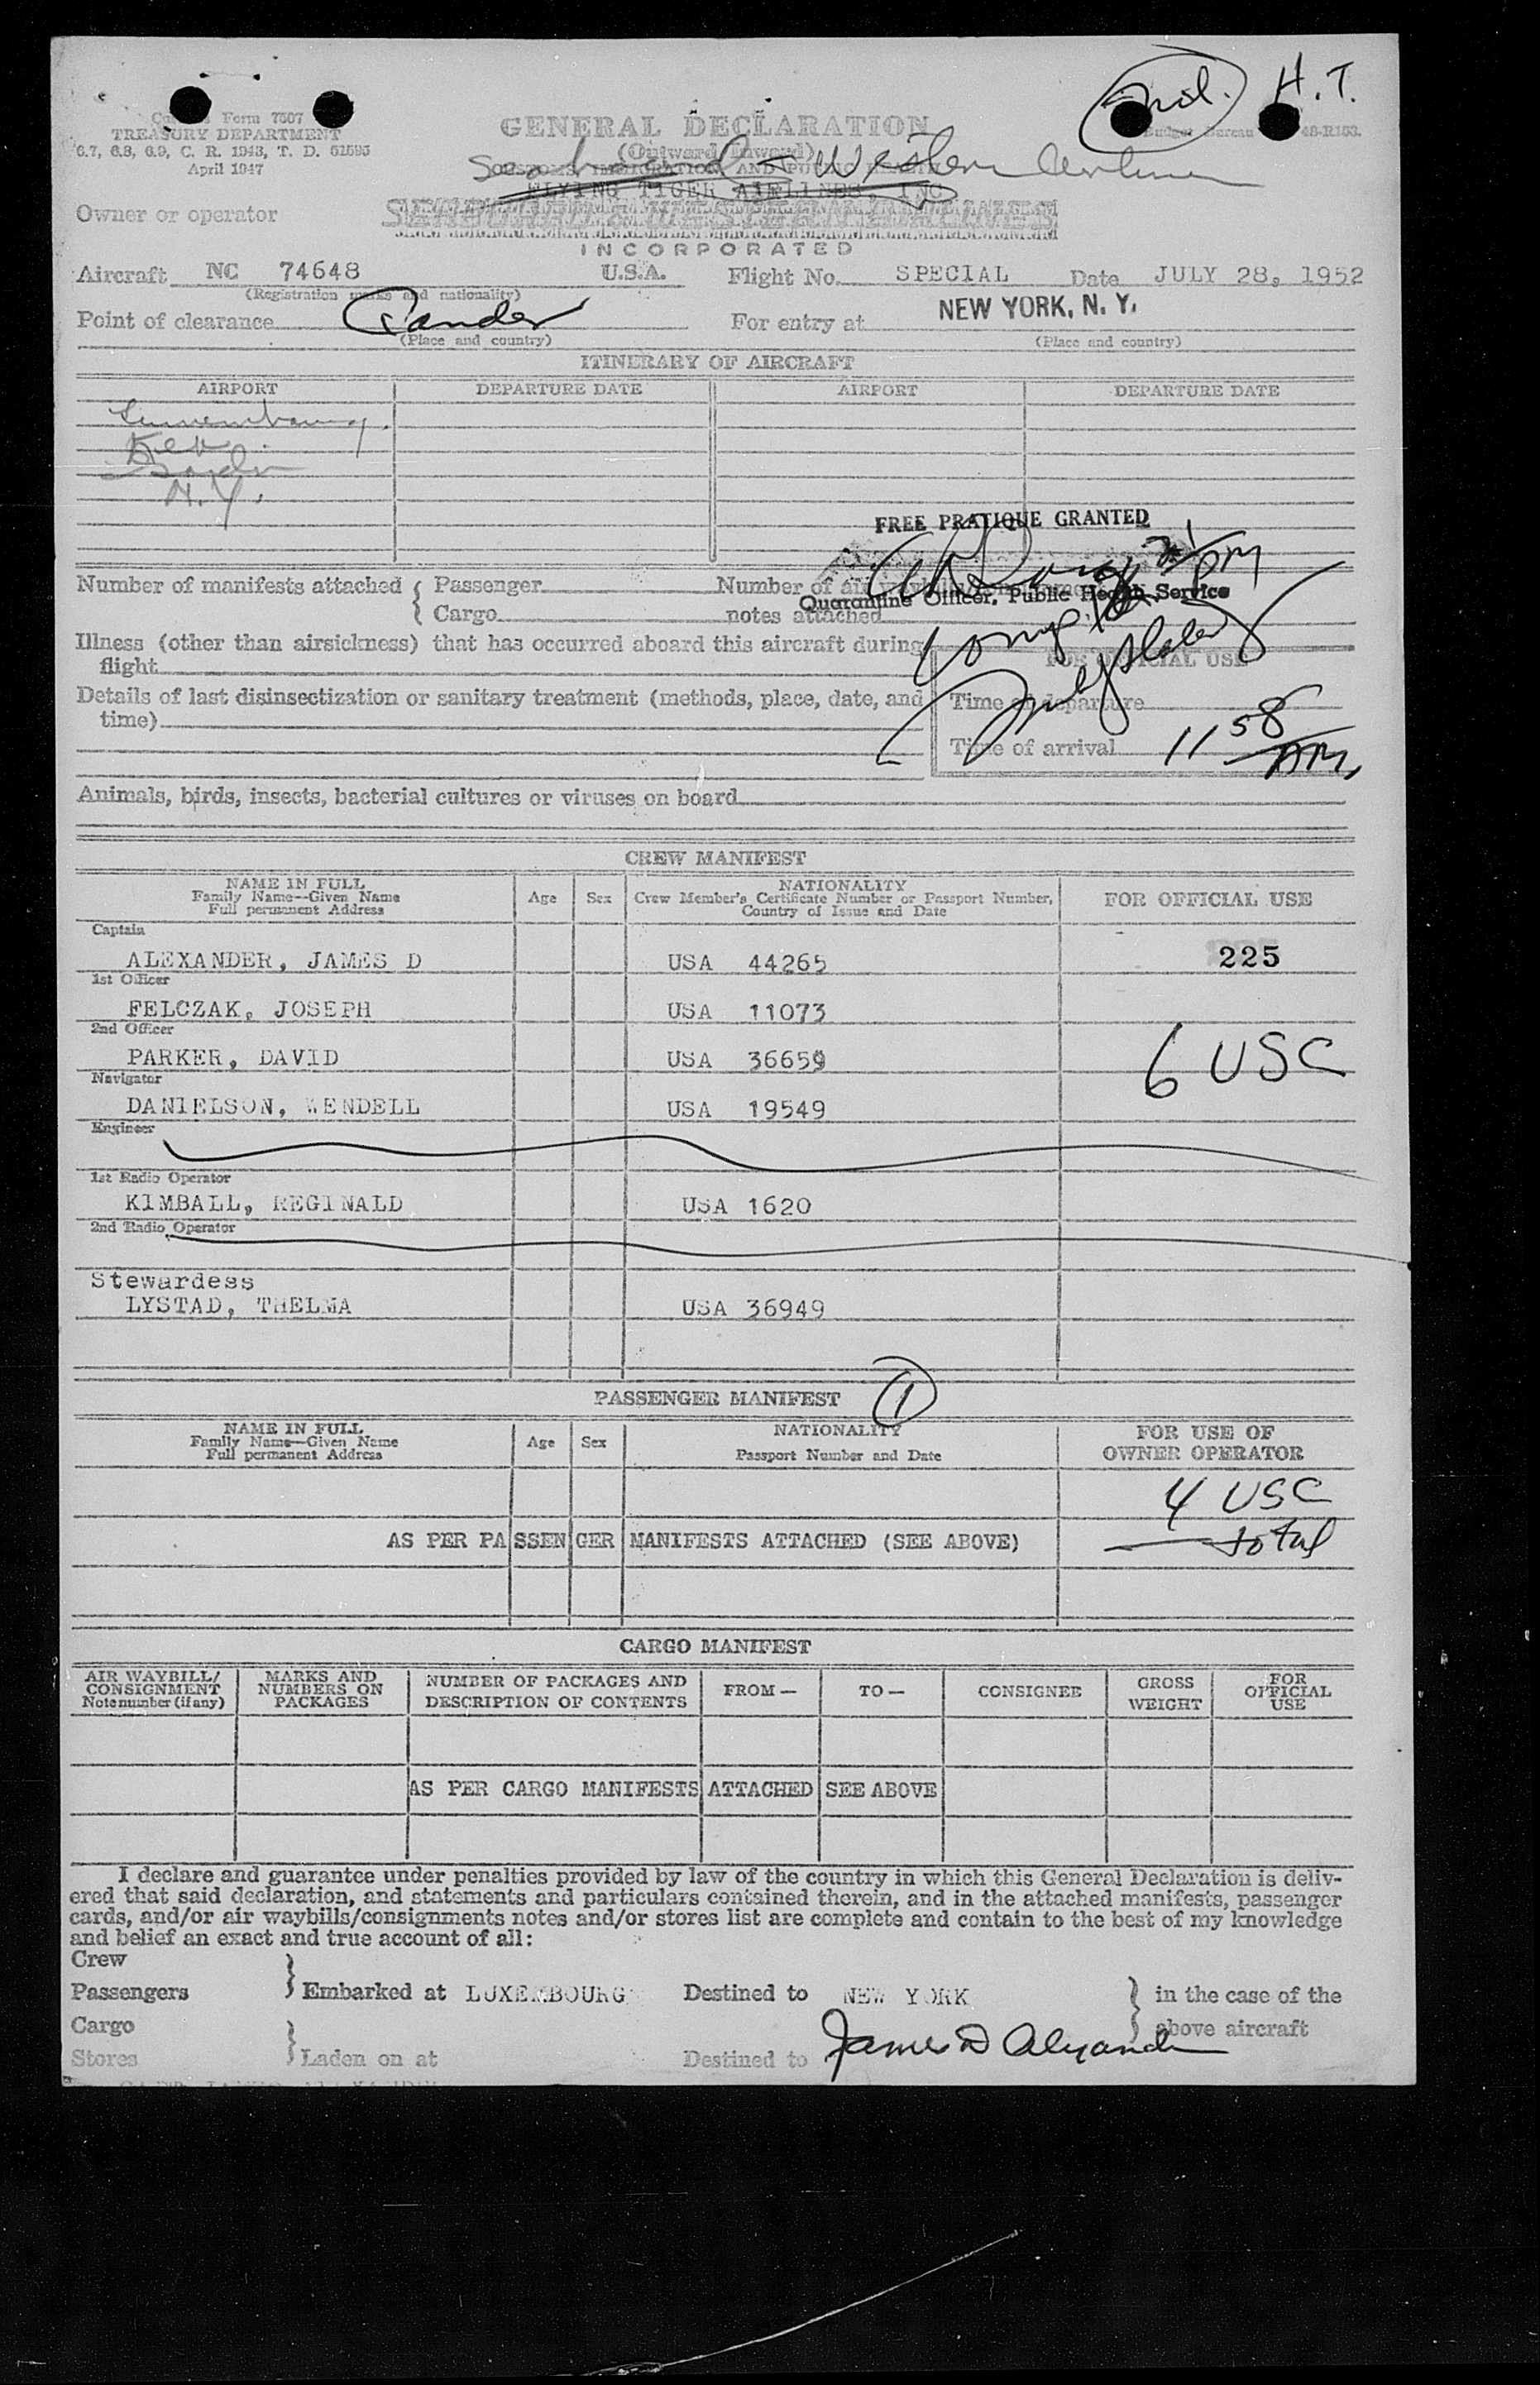 Ind. H. T.
Form 7507
TREASURY DEPARTMENT
6.7, 6.8, 6.9, C. R. 1943, T. D. 51595
April 1947
GENERAL DECLARATION
(Outward Inward)
IMMIGRATION AND PUBLIC
Seaboard - Western Airlines
FLYING TIGER AIRLINES, INC
Budget Bureau 48-R153.
Owner or operator SEABOARD & WESTERN AIRLINES
INCORPORATED
Aircraft NC 74648 U.S.A. Flight No. SPECIAL Date JULY 28, 1952
(Registration marks and nationality)
Point of clearance Gander For entry at NEW YORK, N. Y.
(Place and country) (Place and country)
ITINERARY OF AIRCRAFT
AIRPORT DEPARTURE DATE AIRPORT DEPARTURE DATE
Luxembourg.
Kef.
N.Y.
FREE PRATIQUE GRANTED
PM
Number of manifests attached { Passenger Number of air
Quarantine Officer, Public Health Service
{ Cargo notes attached
Illness (other than airsickness) that has occurred aboard this aircraft during
flight
FOR OFFICIAL USE
Details of last disinsectization or sanitary treatment (methods, place, date, and
time)
Time of departure
Time of arrival 11 58 PM.
Animals, birds, insects, bacterial cultures or viruses on board
CREW MANIFEST
NAME IN FULL
Family Name—Given Name
Full permanent Address
Age Sex
NATIONALITY
Crew Member's Certificate Number or Passport Number,
Country of Issue and Date
FOR OFFICIAL USE
Captain
ALEXANDER, JAMES D USA 44265 225
1st Officer
FELCZAK, JOSEPH USA 11073
2nd Officer
PARKER, DAVID USA 36659 6 USC
Navigator
DANIELSON, WENDELL USA 19549
Engineer
1st Radio Operator
KIMBALL, REGINALD USA 1620
2nd Radio Operator
Stewardess
LYSTAD, THELMA USA 36949
PASSENGER MANIFEST 1
NAME IN FULL
Family Name—Given Name
Full permanent Address
Age Sex
NATIONALITY
Passport Number and Date
FOR USE OF
OWNER OPERATOR
4 USC
AS PER PASSENGER MANIFESTS ATTACHED (SEE ABOVE) total
CARGO MANIFEST
AIR WAYBILL/
CONSIGNMENT
Note number (if any)
MARKS AND
NUMBERS ON
PACKAGES
NUMBER OF PACKAGES AND
DESCRIPTION OF CONTENTS
FROM— TO— CONSIGNEE
GROSS
WEIGHT
FOR
OFFICIAL
USE
AS PER CARGO MANIFESTS ATTACHED SEE ABOVE
I declare and guarantee under penalties provided by law of the country in which this General Declaration is deliv-
ered that said declaration, and statements and particulars contained therein, and in the attached manifests, passenger
cards, and/or air waybills/consignments notes and/or stores list are complete and contain to the best of my knowledge
and belief an exact and true account of all:
Crew
Passengers } Embarked at LUXEMBOURG Destined to NEW YORK } in the case of the
Cargo above aircraft
Stores } Laden on at Destined to James D Alexander